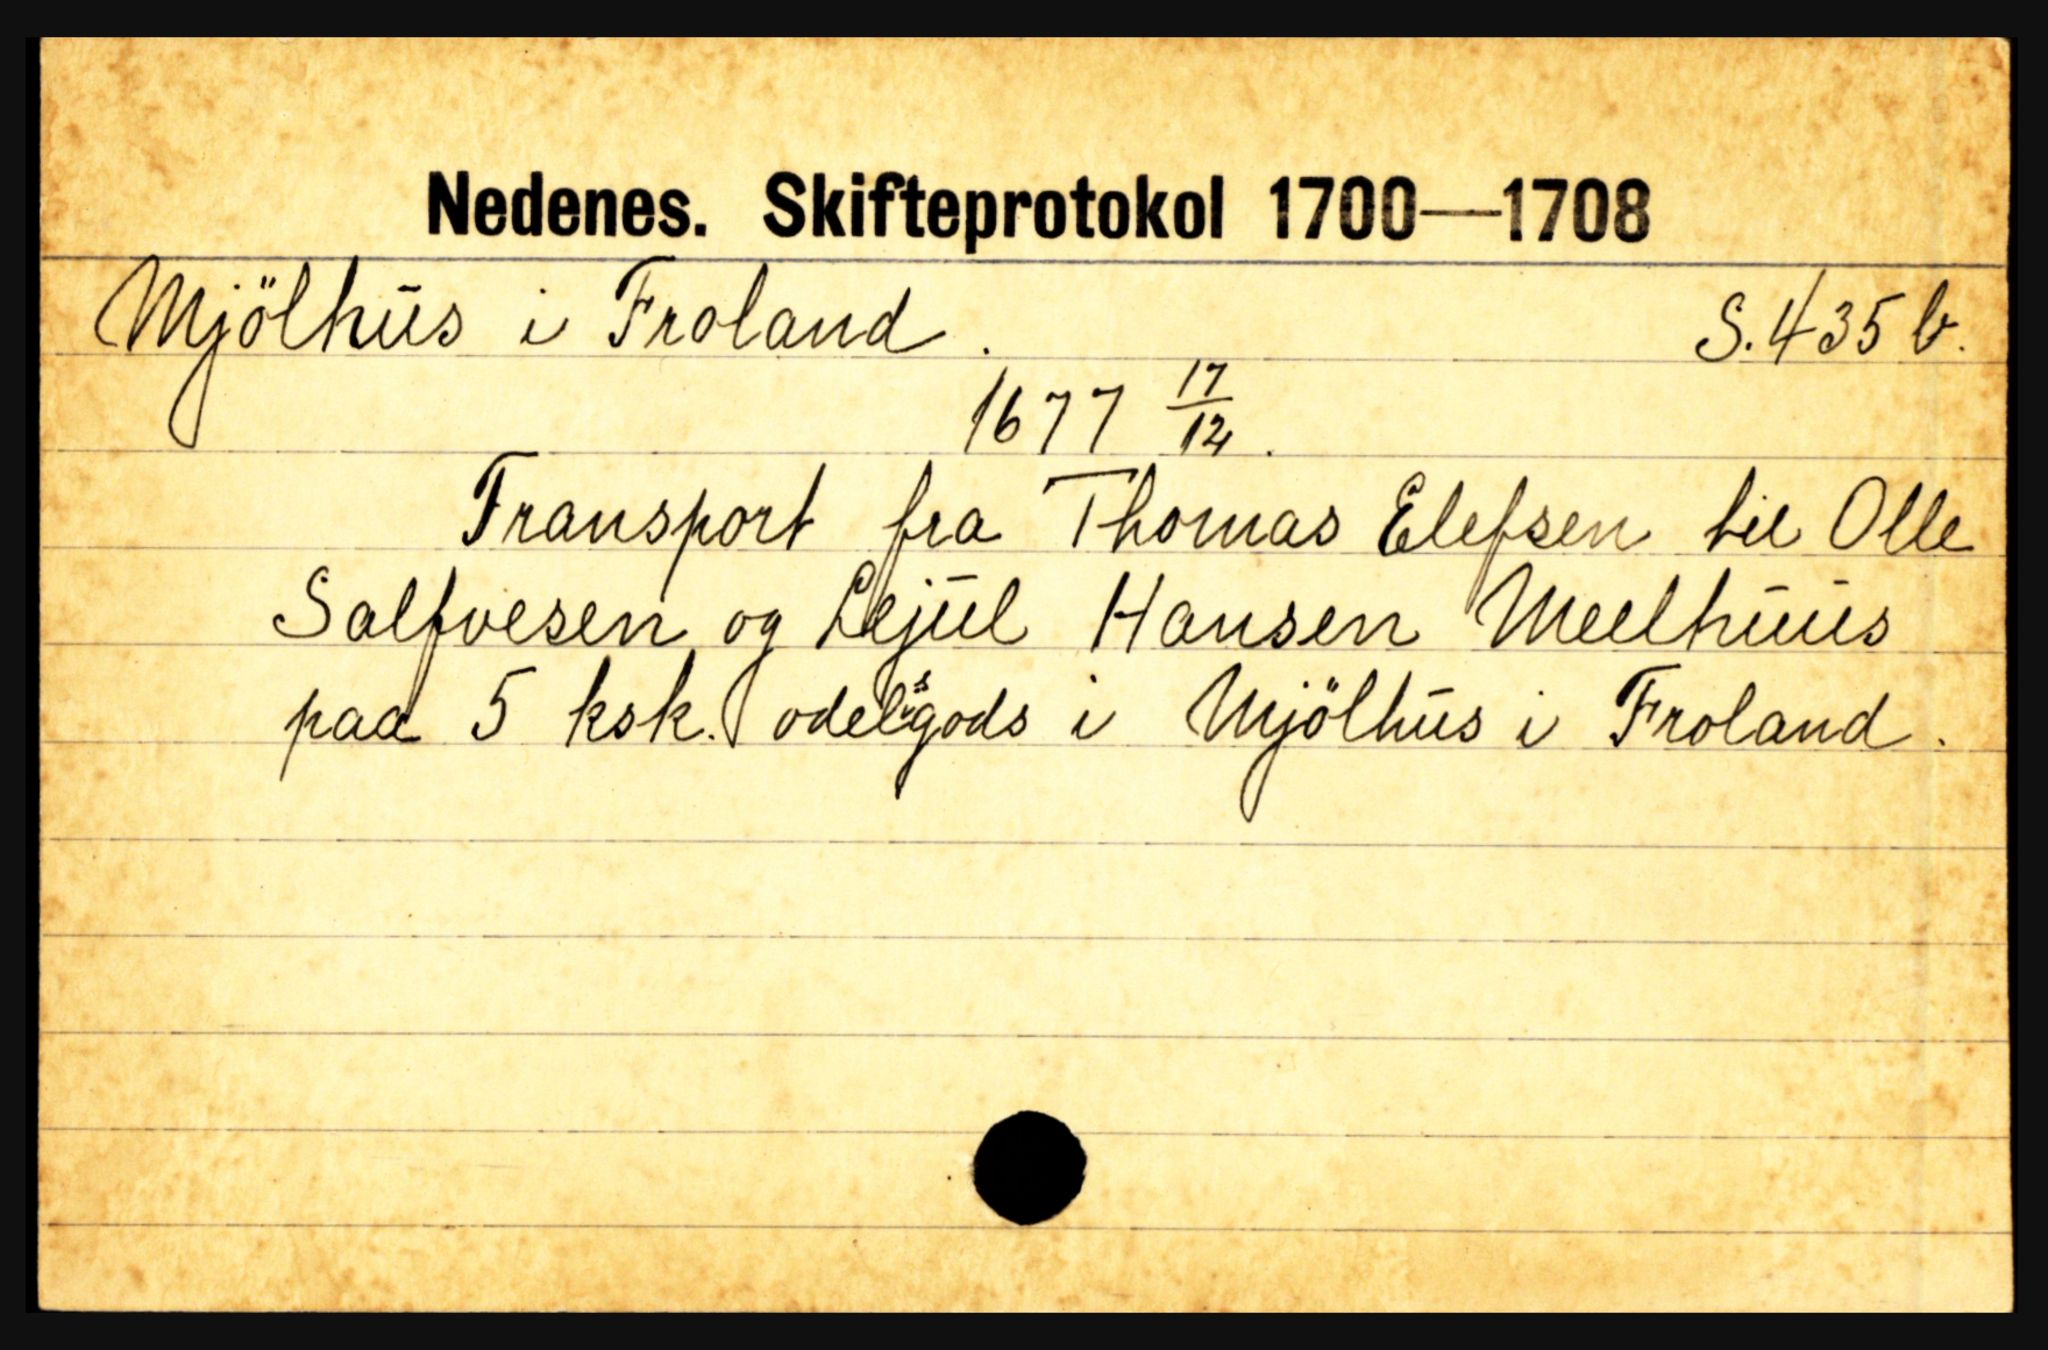 Nedenes. Skifteprotokol 1700—1708
Mjölhūs i Froland. S. 435 b.
1677 17/12.
Transport fra Thomas Elefsen til Olle
Salfvesen og Lejūl Hansen Meelhūus
paa 5 ksk. odelsgods i Mjölhūs i Froland.